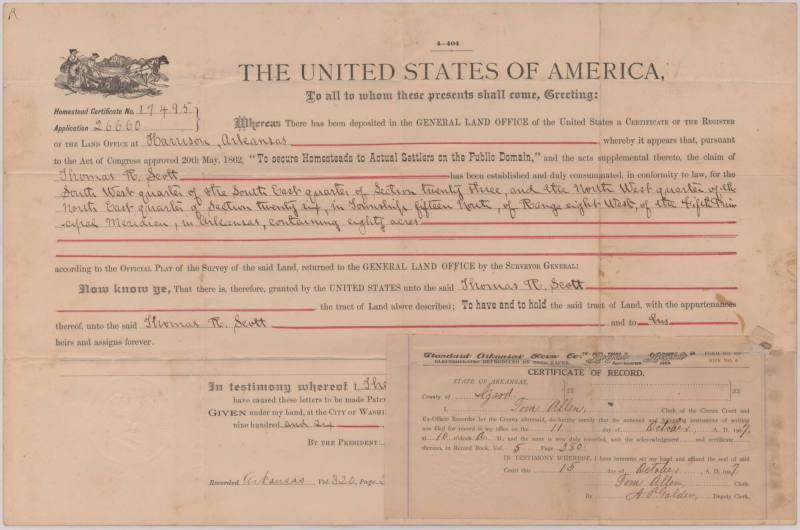 R
4—404
THE UNITED STATES OF AMERICA,
To all to whom these presents shall come, Greeting:
Homestead Certificate No. 17495
Application 26660
Whereas There has been deposited in the GENERAL LAND OFFICE of the United States a CERTIFICATE OF THE REGISTER
OF THE LAND OFFICE AT Harrison, Arkansas whereby it appears that, pursuant
to the Act of Congress approved 20th May, 1862, "To secure Homesteads to Actual Settlers on the Public Domain," and the acts supplemental thereto, the claim of
Thomas R. Scott has been established and duly consummated, in conformity to law, for the
South West quarter of the South East quarter of Section twenty three, and the North West quarter of the
North East quarter of Section twenty six, in Township fifteen North, of Range eight West, of the Fifth Prin
cipal Meridian, in Arkansas, containing eighty acres
according to the OFFICIAL PLAT of the Survey of the said Land, returned to the GENERAL LAND OFFICE by the SURVEYOR GENERAL:
Now know ye, That there is, therefore, granted by the UNITED STATES unto the said Thomas R. Scott
the tract of Land above described; To have and to hold the said tract of Land, with the appurtenances
thereof, unto the said Thomas R. Scott and to his
heirs and assigns forever.
In testimony whereof I, The
have caused these letters to be made Pate
GIVEN under my hand, at the CITY OF WASHI
nine hundred and six
BY THE PRESIDENT:
Recorded Arkansas Vol. 320, Page
Standard Arkansas Form Co.
FORM NO.
SIZE NO. 6
CERTIFICATE OF RECORD.
STATE OF ARKANSAS,
County of Izard
I, Tom Allen, Clerk of the Circuit Court and
Ex-Officio Recorder for the County aforesaid, do hereby certify that the annexed and foregoing instrument of writing
was filed for record in my office on the 11 day of October, A. D. 1907,
at 10 o'clock A. M., and the same is now duly recorded, with the acknowledgment and certificate
thereon, in Record Book, Vol. 5 Page 380.
IN TESTIMONY WHEREOF, I have hereunto set my hand and affixed the seal of said
Court this 15 day of October A. D. 1907
Tom Allen, Clerk.
By Deputy Clerk.